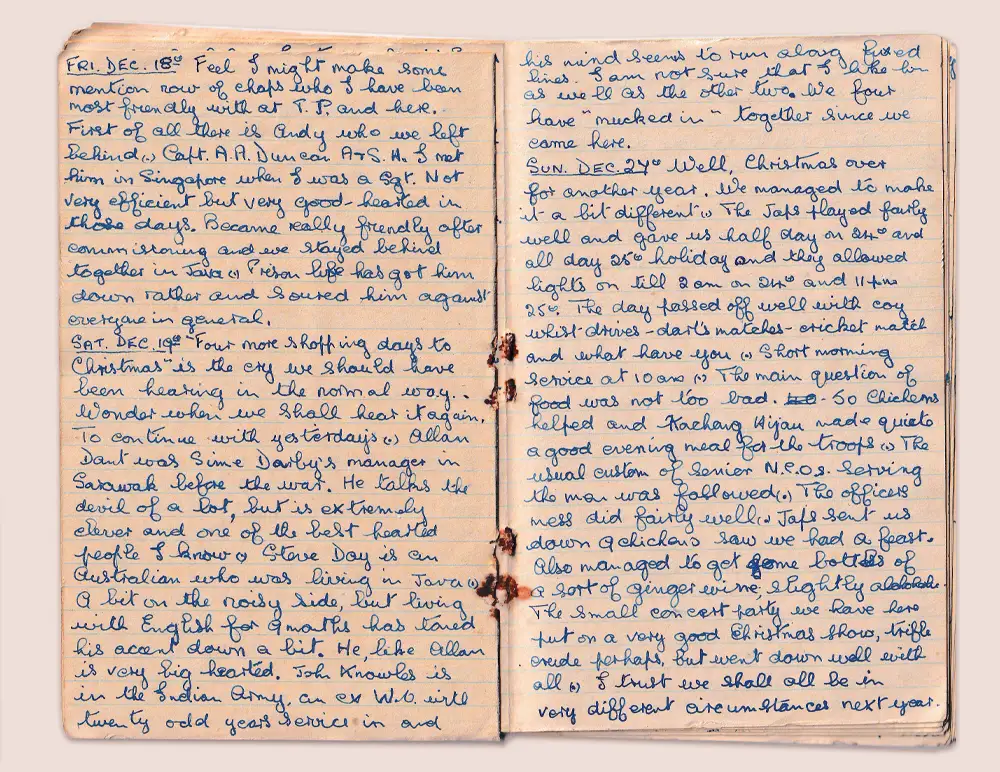 FRI. DEC. 18th Feel I might make some
mention now of chaps who I have been
most friendly with at T.P. and here.
First of all there is Andy who we left
behind(.) Capt. A.A. Duncan A+S.H. I met
him in Singapore when I was a Sgt. Not
very efficient but very good-hearted in
those days. Became really friendly after
commissioning and we stayed behind
together in Java(.) Prison life has got him
down rather and soured him against
everyone in general.
SAT. DEC. 19th "Four more shopping days to
Christmas" is the cry we should have
been hearing in the normal way.
Wonder when we shall hear it again.
To continue with yesterdays(.) Allan
Dant was Sime Darby's manager in
Sarawak before the war. He talks the
devil of a lot, but is extremely
clever and one of the best hearted
people I know(.) Steve Day is an
Australian who was living in Java(.)
A bit on the noisy side, but living
with English for 9 months has toned
his accent down a bit. He, like Allan
is very big hearted. John Knowles is
in the Indian Army, an ex W.O. with
twenty odd years service in and
his mind seems to run along fixed
lines. I am not sure that I like him
as well as the other two. We four
have "mucked in" together since we
came here.
SUN. DEC. 27th Well, Christmas over
for another year. We managed to make
it a bit different(.) The Japs played fairly
well and gave us half day on 24th and
all day 25th holiday and they allowed
lights on till 2 am on 24th and 11 pm
25th. The day passed off well with coy
whist drives - darts matches - cricket match
and what have you(.) Short morning
service at 10 am(.) The main question of
food was not too bad. 50 Chickens
helped and Kachang Hijau made quite
a good evening meal for the troops(.) The
usual custom of senior N.C.O.s. serving
the men was followed(.) The officers
mess did fairly well(.) Japs sent us
down 9 chickens saw we had a feast.
Also managed to get some bottles of
a sort of ginger wine, slightly alcoholic.
The small concert party we have here
put on a very good Christmas show, trifle
crude perhaps, but went down well with
all(.) I trust we shall all be in
very different circumstances next year.